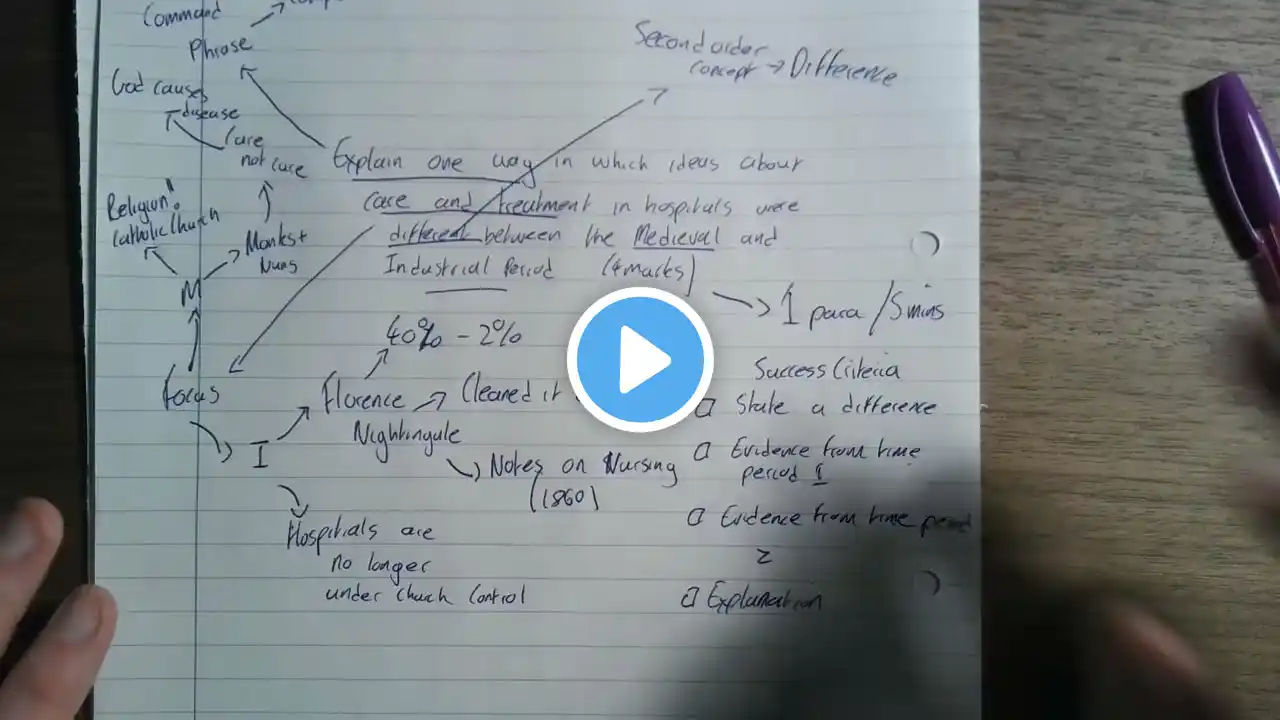 Command
Phrase
Second order
concept → Difference
God causes
disease
Care
not care
Explain one way in which ideas about
care and treatment in hospitals were
different between the Medieval and
Industrial Period (4 marks)
Religion!
Catholic Church
Monks +
Nuns
M
→ 1 para / 5 mins
40% - 2%
Focus
Florence
Nightingale
Cleared it
I
Notes on Nursing
(1860)
Hospitals are
no longer
under church control
Success Criteria
State a difference
Evidence from time
period 1
Evidence from time period
2
Explanation